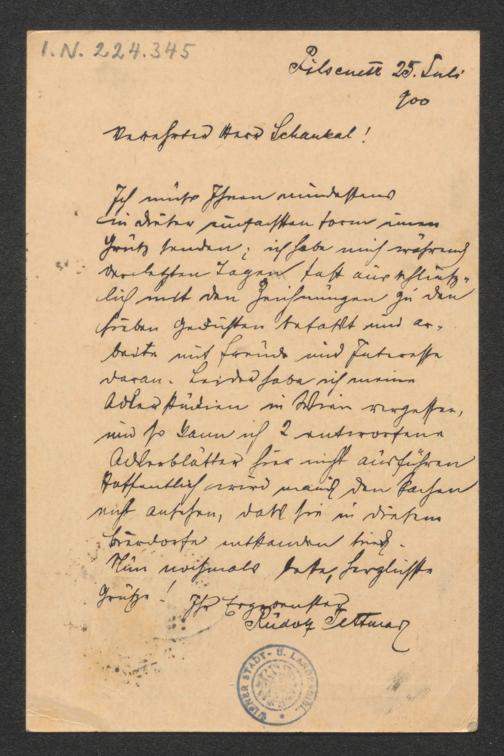 I.N. 224.345
Pilsenett 25. Juli
900
Verehrter Herr Schaukal!
Ich muß Ihnen mindestens
in dieser einfachsten Form einen
Gruß senden; ich habe mich während
der letzten Tagen fast ausschließ-
lich mit den Zeichnungen zu den
sieben Gedichten befaßt und ar-
beite mit Freude und Interesse
daran. Leider habe ich meine
Adlerstudien in Wien vergessen,
und so kann ich 2 entworfene
Adlerblätter hier nicht ausführen
Hoffentlich wird man den Sachen
nicht ansehen, daß sie in diesem
Bierdorfe entstanden sind.
Nun nochmals beste, herzlichste
Grüße! Ihr Ergebenster
Rudolf Jettmar
WIENER STADT- U. LANDESBIBL.